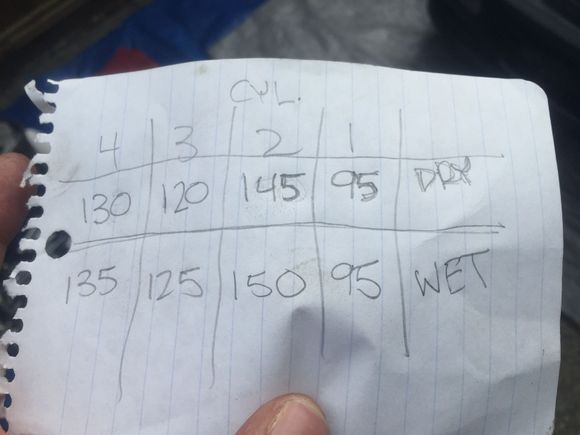 CYL.
4 3 2 1
130 120 145 95 DRY
135 125 150 95 WET